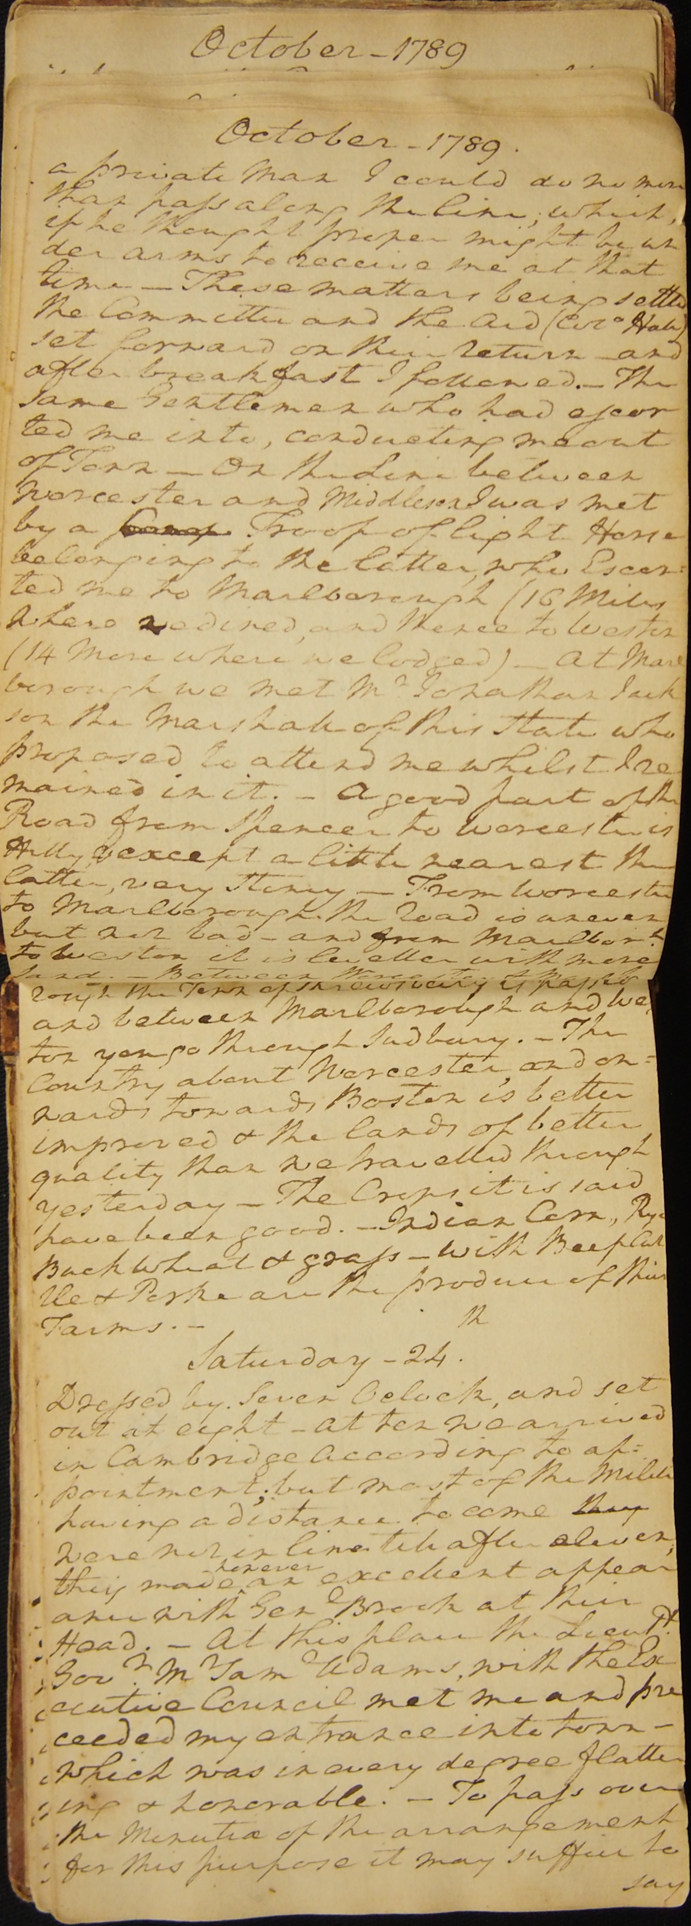 October - 1789
October - 1789.
a private man I could do no more
than pass along the line; which,
if he thought proper might be un
der arms to receive me at that
time — These matters being settled
the Committee and the Aid (Colo. Hall)
set forward on their return - and
after breakfast I followed. — The
same Gentlemen who had escor
ted me into, conducting me out
of Town — On the Line between
Worcester and Middlesex I was met
by a Troop of light Horse
belonging to the latter, who Escor=
ted me to Marlborough (16 Miles
where we dined, and thence to Weston
(14 More where we lodged) — At Marl
borough we met Mr. Jonathan Jack
son the Marshall of this State who
proposed to attend me whilst I re
mained in it. — A good part of the
Road from Spencer to Worcester is
Hilly, & except a little nearest the
latter, very Stoney — From Worcester
to Marlborough the road is uneven
but not bad - and from Marlbor.h
to Weston it is leveller with more
Sand. — Between Worcester &
rough the Town of Shrewsbury is passed
and between Marlborough and Wes
ton you go through Sudbury. — The
Country about Worcester, and on=
wards towards Boston is better
improved & the lands of better
quality than we travelled through
yesterday — The Crops it is said
have been good. — Indian Corn, Rye
Buck Wheat & grass — with Beef Cat
tle & Porke are the produce of their
Farms. —
Saturday - 24th.
Dressed by Seven Oclock, and set
out at eight - at ten we arrived
in Cambridge According to ap=
pointment; but most of the Militia
having a distance to come they
were not in line till after eleven;
they made however an excellent appear
ance with Genl. Brook at their
Head. — At this place the Lieutt.
Govr. Mr. Saml. Adams, with the Ex
ecutive Council met me and pre
ceeded my entrance into town —
which was in every degree flatter
ing & honorable. — To pass over
the Minutiæ of the arrangement
for this purpose it may suffice to
say